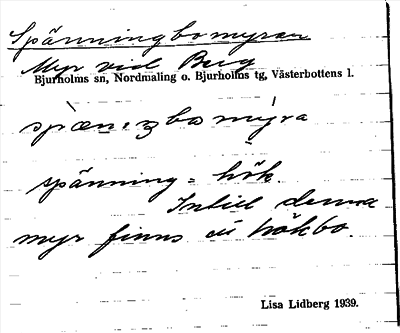 Spänningbomyran
Myr vid Berg
Bjurholms sn, Nordmaling o. Bjurholms tg, Västerbottens l.
myra
spänning = hök.
Intill denna
myr finns ett hökbo.
Lisa Lidberg 1939.